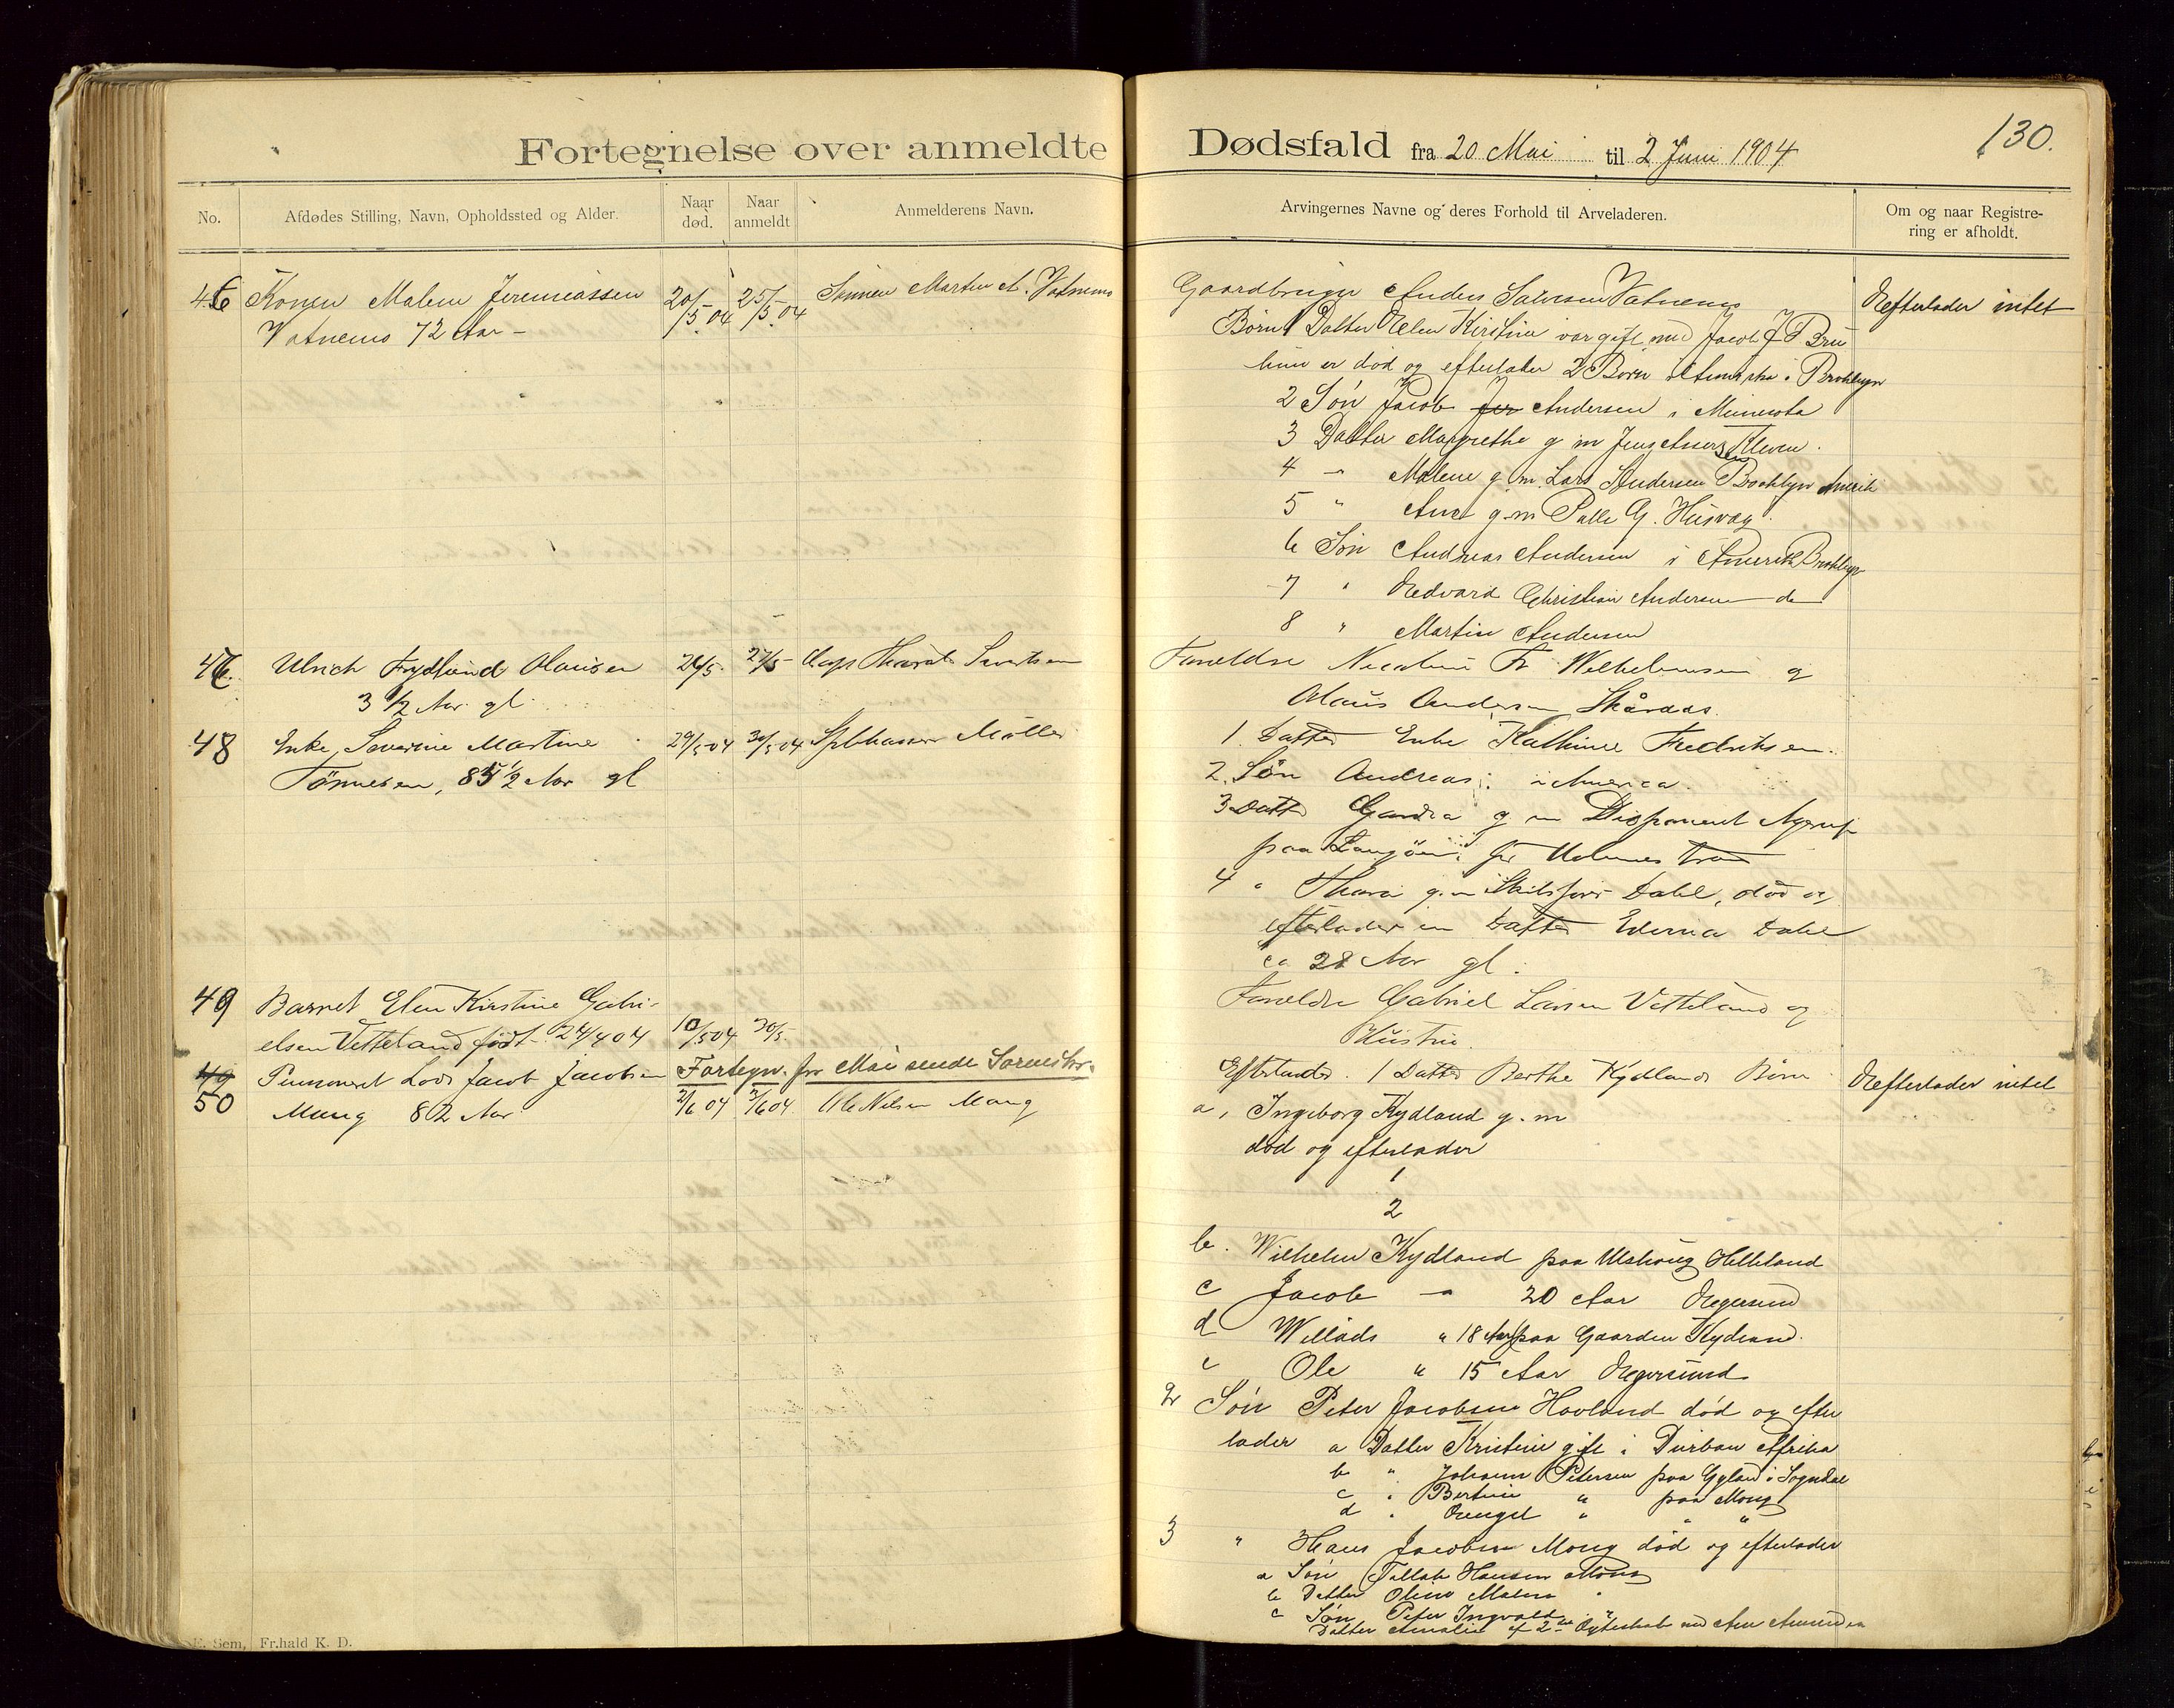 Fortegnelse over anmeldte Dødsfald fra 20 Mai til 2 Juni 1904
130.
No.
Afdødes Stilling, Navn, Opholdssted og Alder.
Naar død.
Naar anmeldt
Anmelderens Navn.
Arvingernes Navne og deres Forhold til Arveladeren.
Om og naar Registrering er afholdt.
46 Konen Malene Jeremiassen
Vatnemo 72 Aar –
20/5 04
25/5 04
Sønnen Martin A. Vatnemo
Gaardbruger Anders Salvesen Vatnemo
Efterlader intet
Børn 1 Datter Elen Kirstine var gift med Jacob J
hun er død og efterlader 2 Børn i Amerika i Brooklyn
2 Søn Jacob Andersen i Minesota
3 Datter Margrethe g m Jens Kleven.
4 – Malene g. m. Lars Andersen Brooklyn Amerik
5 " g. m Palle G. Husvæg.
6 Søn Andreas Andersen i Amerika Brooklyn
7 " Edvard Christian Andersen do
8 " Martin Andersen
47. Ulrich Frydlund Olausen
3 1/2 Aar gl
27/5
Forældre Wilhelmsen og
Olaus Andersen
48 Enke, Severine Martine
Tønnesen, 85 1/2 Aar gl
29/5 04
30/5 04
Møller
1. Datter Enke Kathinee Fredriksen.
2. Søn Andreas i America.
3 Datter g m Disponent
paa Langøen pr Holmestrand
4 " Thora g. m Dahl, død og
efterlader en Datter Dahl
ca 28 Aar gl.
49 Barnet Elen Kirstine Gabri-
elsen Vetteland født 24/4 04
10/5 04
30/5
Forældre Gabriel Larsen Vetteland og
Hustru
Fortegn. for Mai sendt Sorenskr.
49
50 Pensioneret Lods Jacob Jacobsen
Mong 82 Aar
2/6 04
2/6 04
Ole Nilsen Mong
Efterlader. 1 Datter Berthe Kydland Børn
Efterlader intet
a, Ingeborg Kydland g. m
død og efterlader
1
2
b. Wilhelm Kydland paa Helleland
c Jacob – 20 Aar Egersund
d Willads " 18 Aar paa Gaarden Kydland.
e Ole " 15 Aar Egersund
2 Søn Peter Jacobsen Hovland død og efter
lader a Datter Kristine gift i Durban Afrika
b " Johanne Petersen paa Gyland i Sogndal
c " Bertine " paa Mong
d " Rengel " " "
3 " Hans Jacobsen Mong død og efterlader
a Søn Tallak Hansen Mong
b Datter Oline Malene "
c Søn Peter Ingvald "
Datter Amalie af 2det Ægteskab med
E. Sem, Fr.hald K. D.